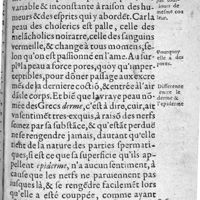 variable & inconstante à raison des hu-
meurs & des espris qui y abordēt. Car la
peau des choleriēs est palle, celle des
melācholiēs noirâtre, celle des sanguins
vermeille, & change à tous momens, se-
lon qu'on est passionné en l'ame. Au sur-
la peau a force pores, quoy qu'impar-
ceptibles, pour dōner passage aux excre
més de la derniere coctiō, & entrée à l'air
de corps. Et biē que la vraye peau nō-
mée des Grecs derme, c'est à dire, cuir, ait
vn sentimēt tres-exquis, à raisō des nerfs
& qu'estās perdu
ne se rengendre jamais, d'autant qu'elle
tient de la nature des parties spermati-
ques, si est ce que sa superficie qu'ils ap-
pellent epiderme, n'a aucun sentiment, à
cause que les nerfs ne parviennent pas
jusques là, & se rengēdre facilemēt lors
qu'elle a esté couppée, comme
leur.
Pourquoy
elle a des
pores.
Difference
entre le
derme &
l'epiderme